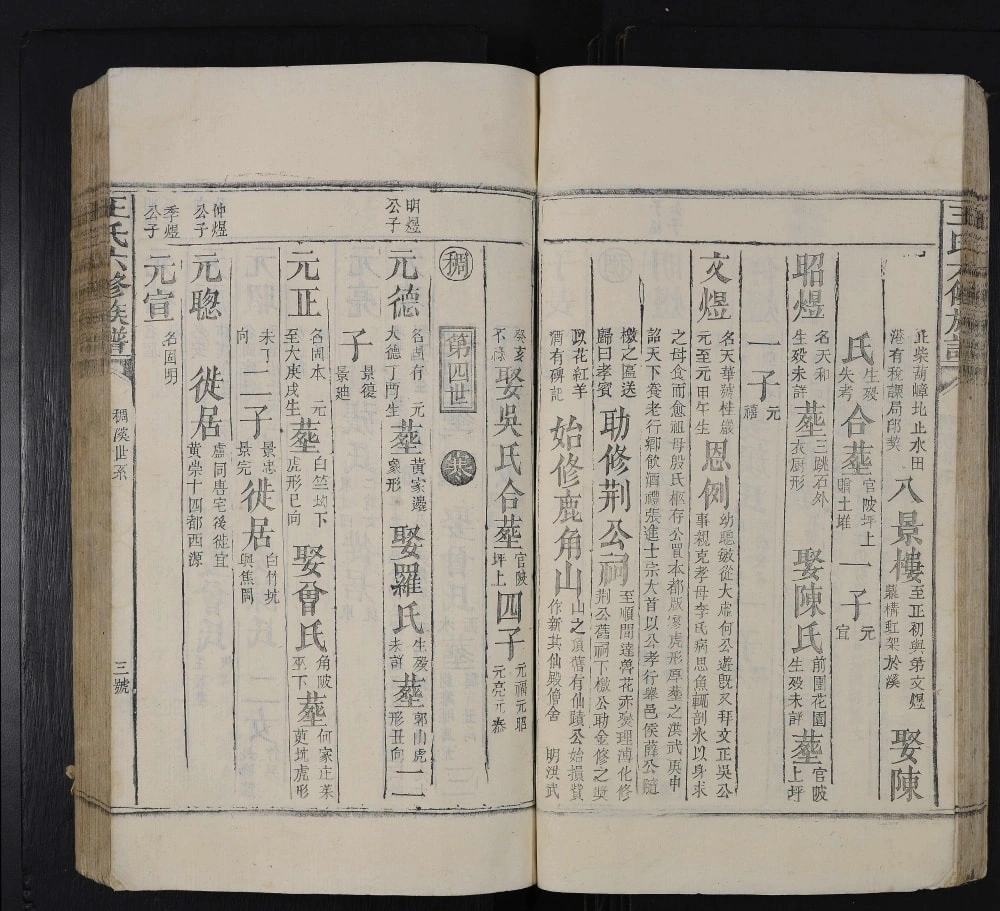 王氏六修族譜
止柴萴嶂北止水田港有稅課局邱契 八景樓 至正初與弟文煜疊構虹架於溪 娶陳
氏 生歿失考 合塟 官陂坪上骝土堆 一子 元宣
昭煜 名天和生歿未詳 塟 三跳石外衣厨形 娶陳氏 前園花園生歿未詳 塟 官陂上坪
一子 元禧
文煜 名天華號桂巖元至元甲午生 恩例 幼聰敏從大虛何公遊既又拜文正吳公事親克孝母李氏病思魚輒剖氷以身求
之母食而愈祖母殷氏柩存公買本都版寥虎形厚塟之漢武庚申
詔天下養老行鄉飲酒禮張進士宗大首以公孝行舉邑侯薛公隨
檄之區送歸曰孝賓 助修荆公祠 至順間達魯花赤爕理溥化修荆公舊祠下檄公助金修之獎
以花紅羊酒有碑記 始修鹿角山 山之頂舊有仙蹟公始損貲作新其仙殿僧舍 明洪武
癸亥不祿 娶吳氏合塟 官陂坪上 四子 元禧元昭元亮元泰
稠 第四世 派
明煜公子 元德 名國有 元大德丁酉生 塟 黃家邊象形 娶羅氏 生歿未詳 塟 郭山虎形丑向 二
子 景從景廸
元正 名國本 元至大庚戌生 塟 白竺坳下虎形巳向 娶曾氏 角陂巫下 塟 何家庄菜萸坑虎形
未丁向 二子 景忠景完 徙居 白竹坑與焦岡
仲煜公子 元聰 徙居 盧同唐宅後徙宜黃崇十四都西源
季煜公子 元宣 名國明
王氏六修族譜 稠溪世系 三號